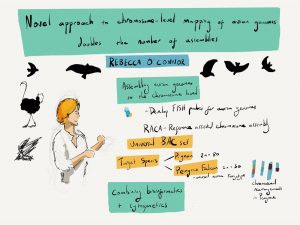 Novel approach to chromosome-level mapping of avian genomes
doubles the number of assemblies.
REBECCA O'CONNOR
Assembling avian genomes
to the chromosome level
- Develop FISH probes for avian genomes
RACA - Reference assisted chromosome assembly
Universal BAC set
Target Species
Pigeon 2n=80
Peregrine Falcon 2n=50
Combining bioinformatics
+ cytogenetics
chromosomal
rearrangements